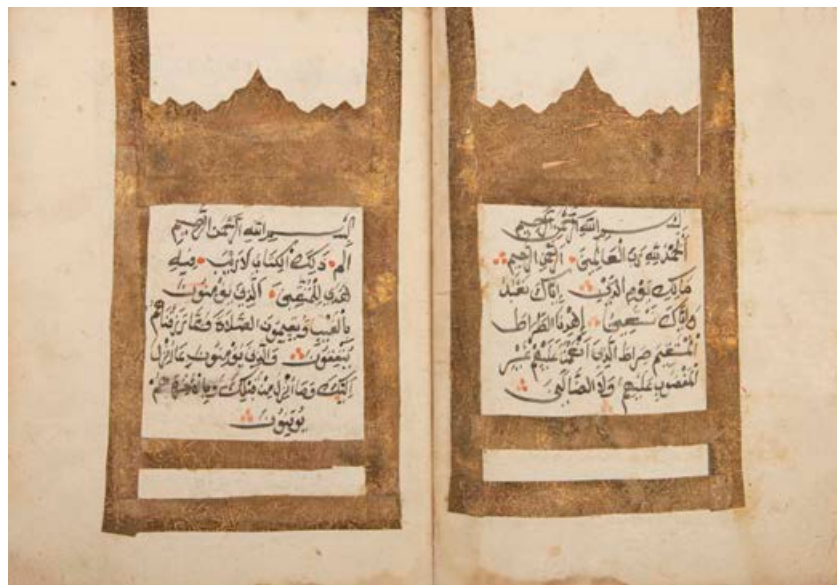 بسم الله الرحمن الرحيم
الحمد لله رب العالمين الرحمن الرحيم
مالك يوم الدين اياك نعبد
واياك نستعين اهدنا الصراط
المستقيم صراط الذين انعمت عليهم غير
المغضوب عليهم ولا الضالين
بسم الله الرحمن الرحيم
الم ذلك الكتاب لا ريب فيه
هدى للمتقين الذين يؤمنون
بالغيب ويقيمون الصلاة ومما رزقناهم
ينفقون والذين يؤمنون بما انزل
اليك وما انزل من قبلك وبالاخرة هم
يوقنون